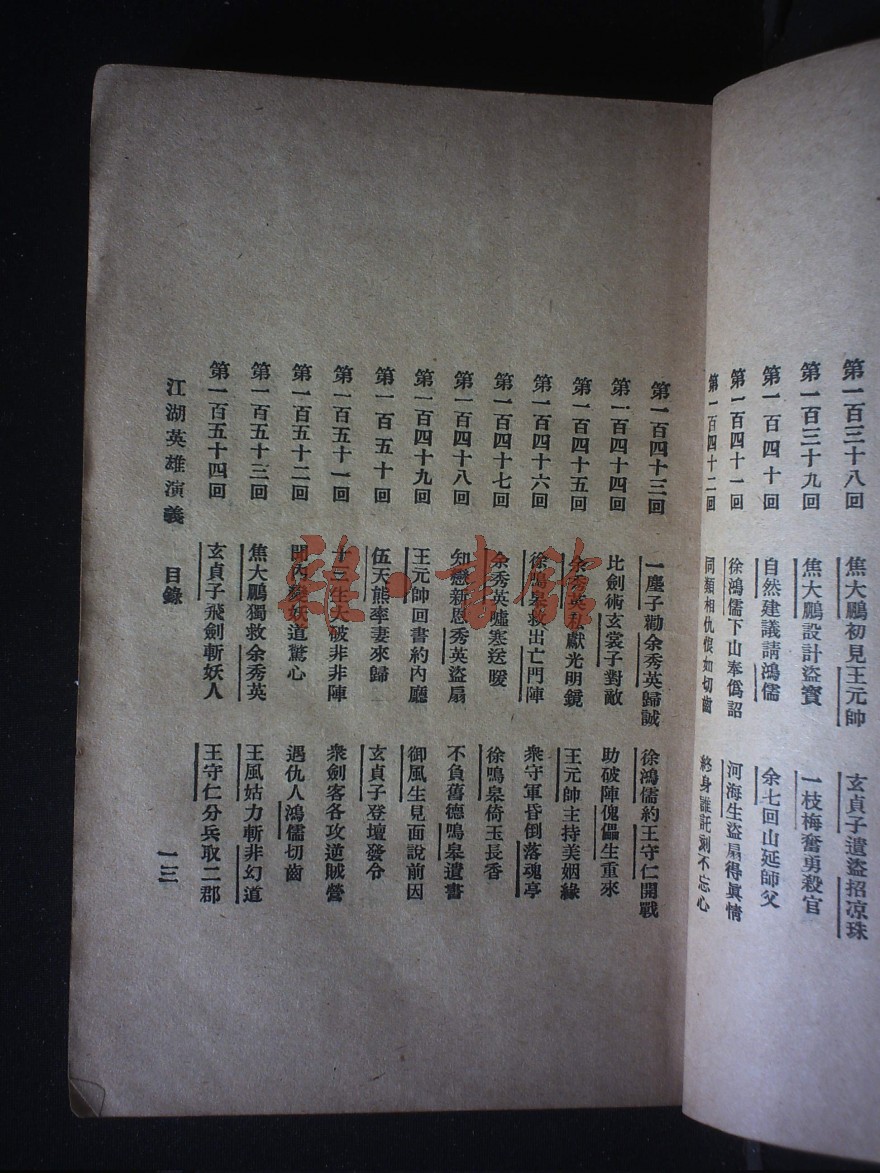 第一百三十八回 焦大鵬初見王元帥 玄貞子遺盜招凉珠
第一百三十九回 焦大鵬設計盜寶 一枝梅奮勇殺官
第一百四十回 自然建議請鴻儒 余七回山延師父
第一百四十一回 徐鴻儒下山奉僞詔 河海生盜扇得眞情
第一百四十二回 同類相仇恨如切齒 終身誰託刻不忘心
第一百四十三回 一塵子勸余秀英歸誠 徐鴻儒約王守仁開戰
第一百四十四回 比劍術玄裳子對敵 助破陣傀儡生重來
第一百四十五回 余秀英私獻光明鏡 王元帥主持美姻緣
第一百四十六回 徐鳴皋救出亡門陣 衆守軍昏倒落魂亭
第一百四十七回 余秀英噓寒送暖 徐鳴皋倚玉長香
第一百四十八回 知戀新恩秀英盜扇 不負舊德鳴皋遺書
第一百四十九回 王元帥回書約內廳 御風生見面說前因
第一百五十回 伍天熊率妻來歸 玄貞子登壇發令
第一百五十一回 十三生大破非非陣 衆劍客各攻逆賊營
第一百五十二回 聞內變妖道驚心 遇仇人鴻儒切齒
第一百五十三回 焦大鵬獨救余秀英 王風姑力斬非幻道
第一百五十四回 玄貞子飛劍斬妖人 王守仁分兵取二郡
江湖英雄演義 目錄 一三
雜·書館